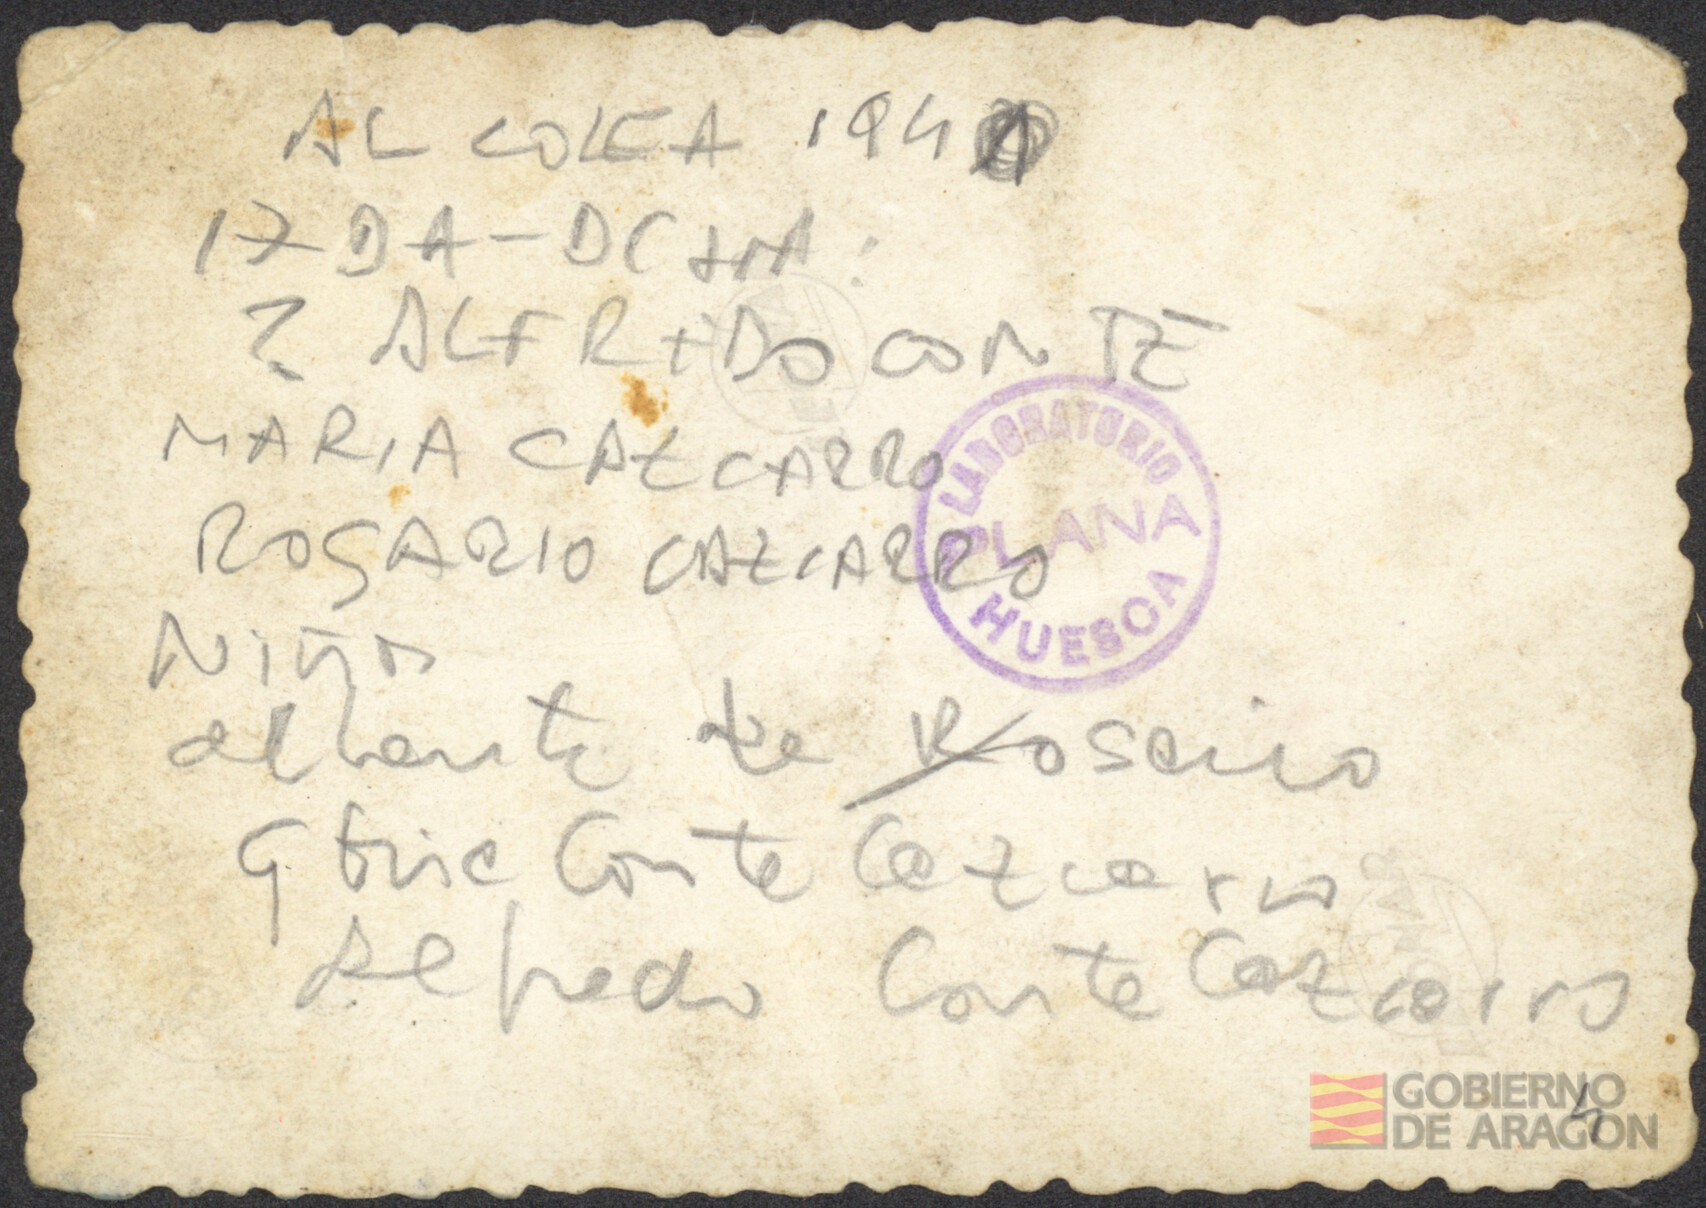 ALCOLEA 1941
IZDA-DCHA:
? ALFREDO CONTE
MARIA CAZCARRO
ROSARIO CAZCARRO
NIÑOS
delante de Rosario
Conte Cazcarro
Alfredo Conte Cazcarro
LABORATORIO
PLANA
HUESCA
GOBIERNO
DE ARAGON
4